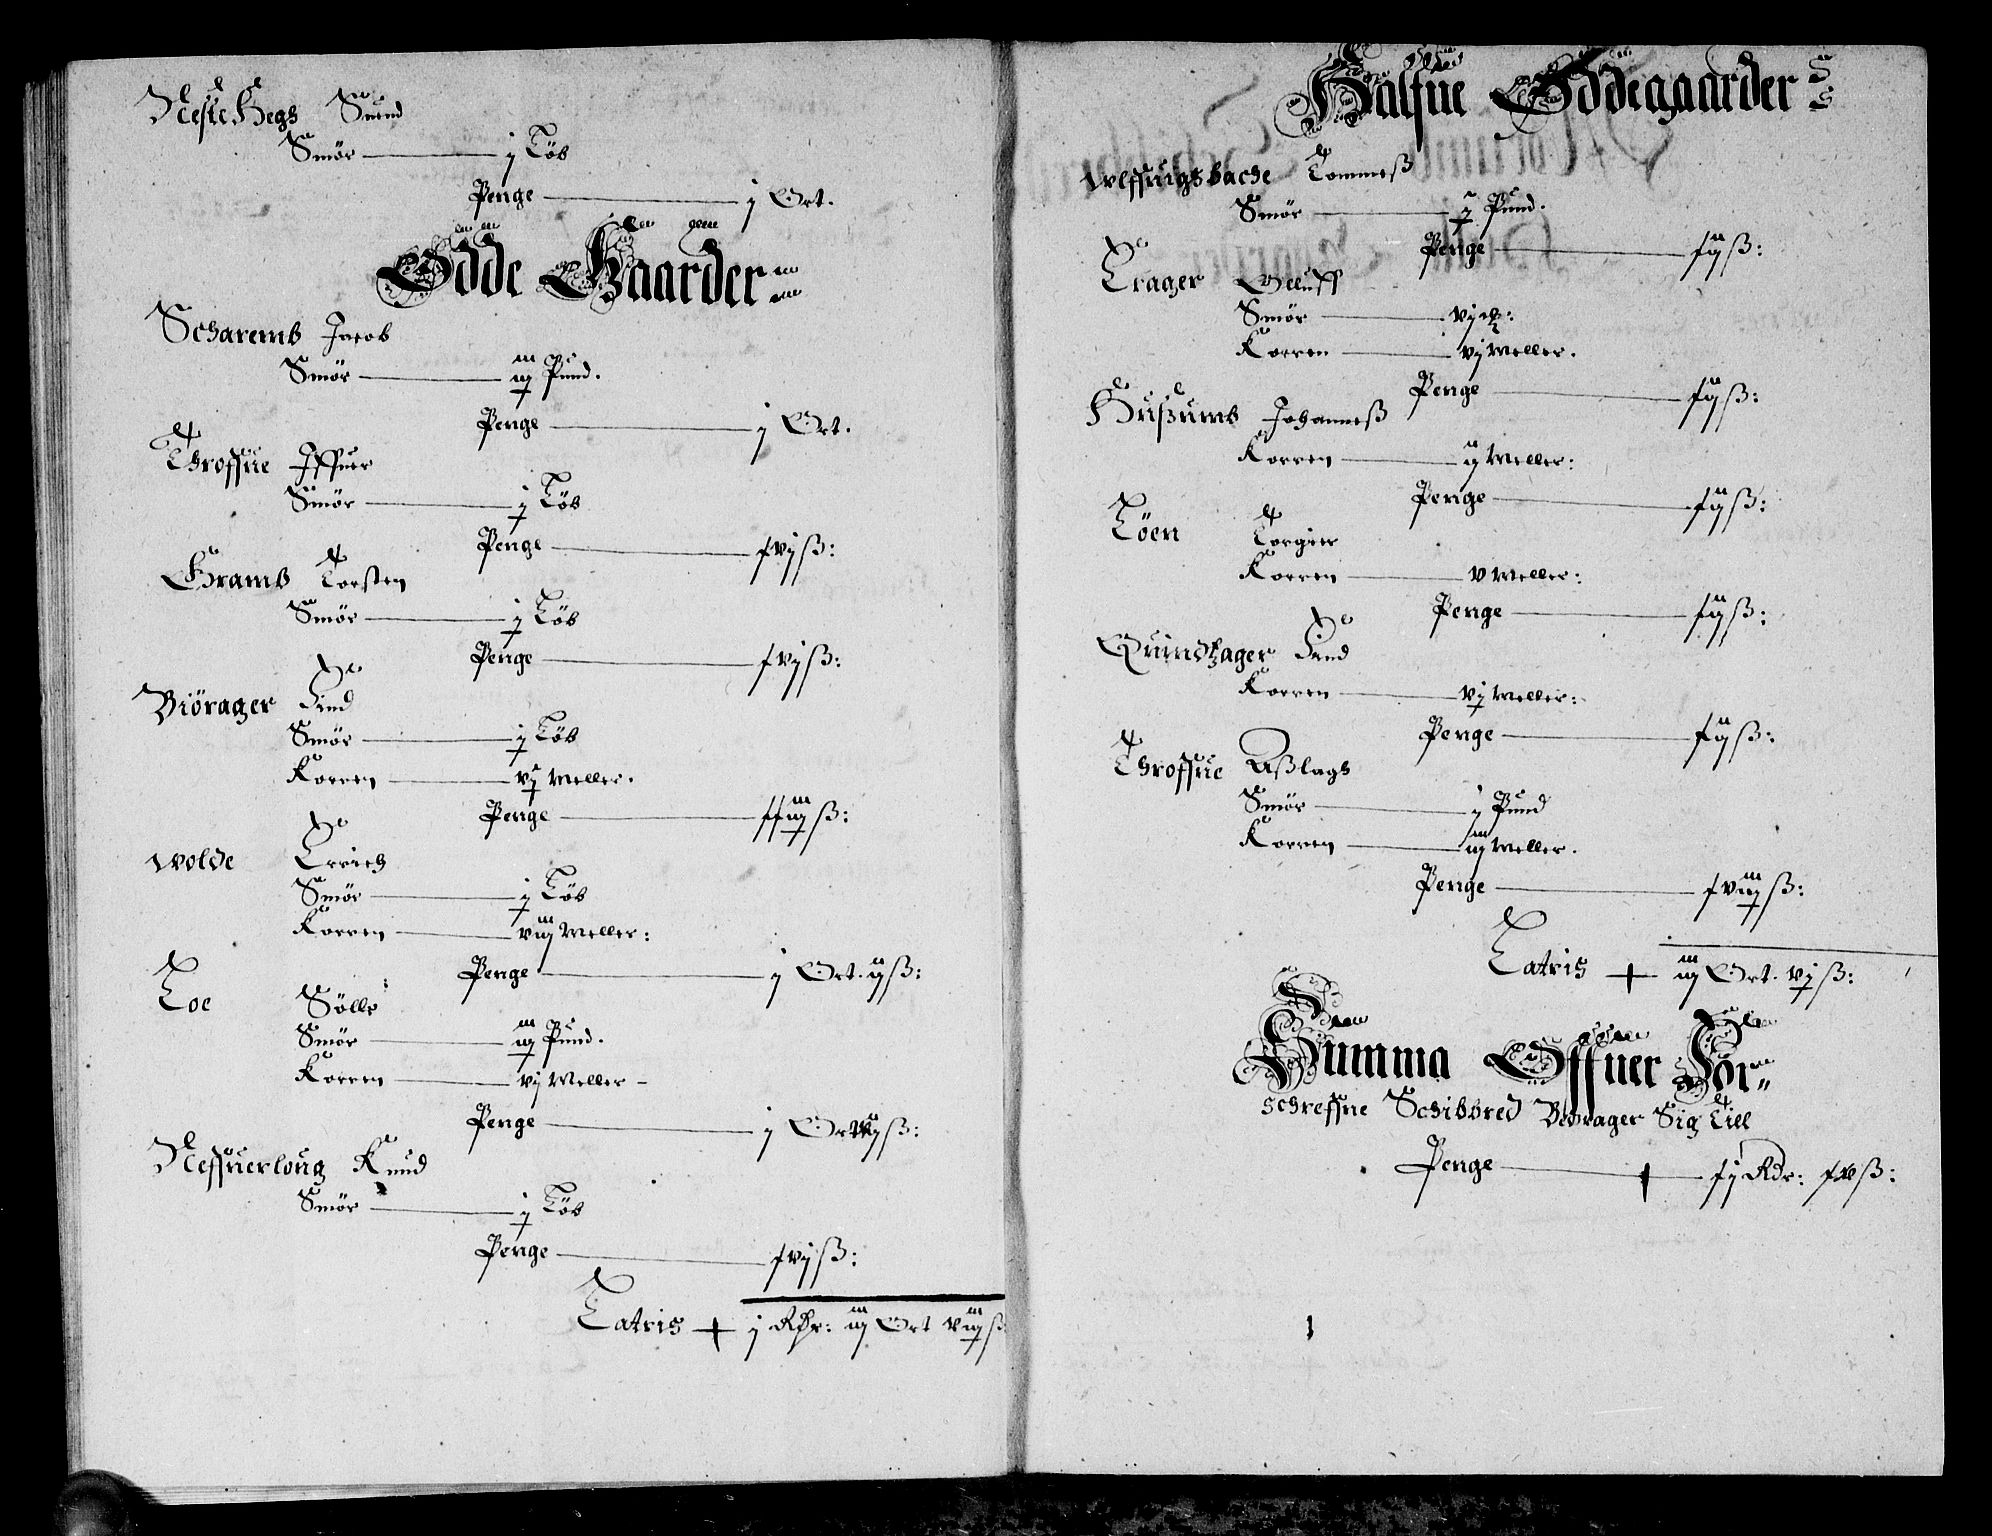 Neste Hegs Suend
Smör — j Löb
Penge — j Ort.
Ödde Gaarder
Scharemb Jacob
Smör — iij Pund.
Penge — j Ort.
Throffue Iffuer
Smör — j Löb
Penge — ſvjß:
Gramb Torsten
Smör — j Löb
Penge — ſvjß:
Biörager Lind
Smör — j Löb
Korren — vj Meller.
Penge — ſſiijß:
Wolde Errich
Smör — j Löb
Korren — viij Meller:
Penge — j Ort. ijß:
Loe Sölle
Smör — iij Pund.
Korren — vj Meller
Penge — j Ort
Neffuerloug Knud
Smör — j Löb
Penge — ſvjß:
Latris + j Rdr: iij Ort viijß
Halfue Ödegaarder
Wlffuigsbache Tommeß
Smör — j Pund.
Penge — ſijß:
Crager Oelluff
Smör — vj
Korren — vj Meller.
Penge — ſijß:
Hußumb Johanneß
Korren — ij Meller:
Penge — ſijß:
Löen Torgier
Korren — v Meller:
Penge — ſijß:
Quindhager Lind
Korren — vj Meller:
Penge — ſijß:
Throffue Aßlags
Smör — j Pund
Korren — iij Meller.
Penge — ſviijß:
Latris + iij Ort. vjß:
Summa Offuer For
schreffne Schibbred Bedrager Sig Till
Penge — ſj Rdr: ſvß: